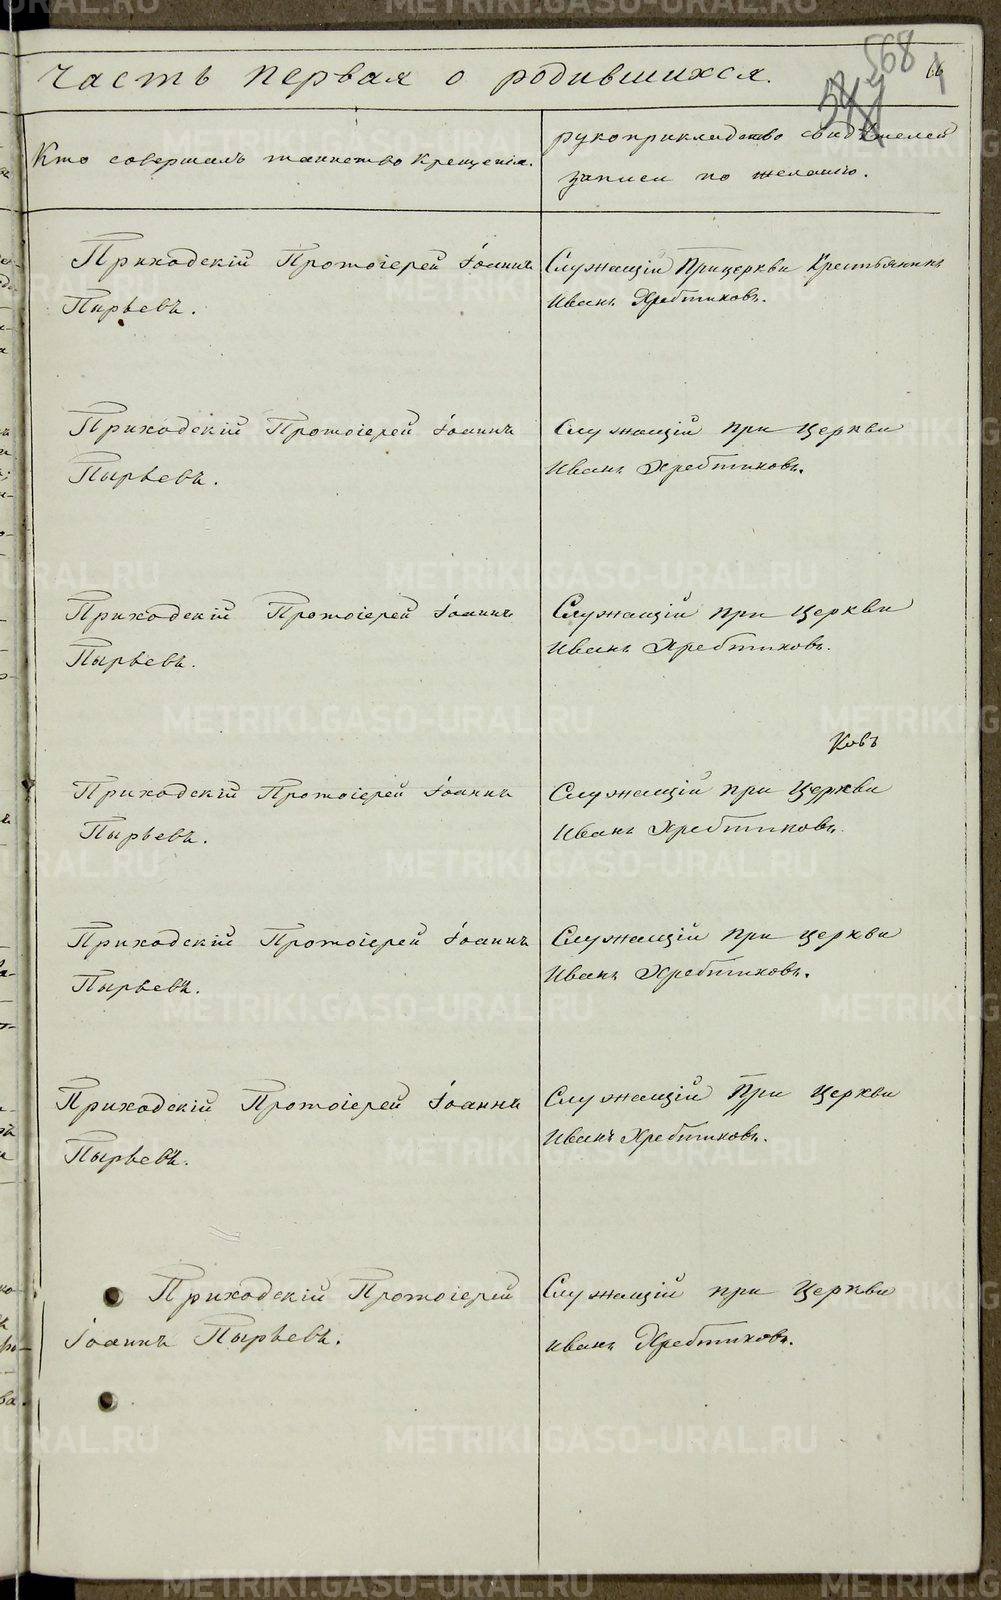 568
Часть первая о родившихся.
Кто совершалъ таинство крещенія.
рукоприкладство свидѣтелей
записи по желанію.
Приходскій Протоіерей Іоаннъ
Пырьевъ.
Служащій Прицеркви Крестьянинъ
Иванъ Хребтиковъ.
Приходскій Протоіерей Іоаннъ
Пырьевъ.
Служащій при Церкви
Иванъ Хребтиковъ.
Приходскій Протоіерей Іоаннъ
Пырьевъ.
Служащій при Церкви
Иванъ Хребтиковъ.
ковъ
Приходскій Протоіерей Іоаннъ
Пырьевъ.
Служащій при Церкви
Иванъ Хребтиковъ.
Приходскій Протоіерей Іоаннъ
Пырьевъ.
Служащій при церкви
Иванъ Хребтиковъ.
Приходскій Протоіерей Іоаннъ
Пырьевъ.
Служащій При Церкви
Иванъ Хребтиковъ.
Приходскій Протоіерей
Іоаннъ Пырьевъ.
Служащій при Церкви
иванъ Хребтиковъ.
METRIKI.GASO-URAL.RU